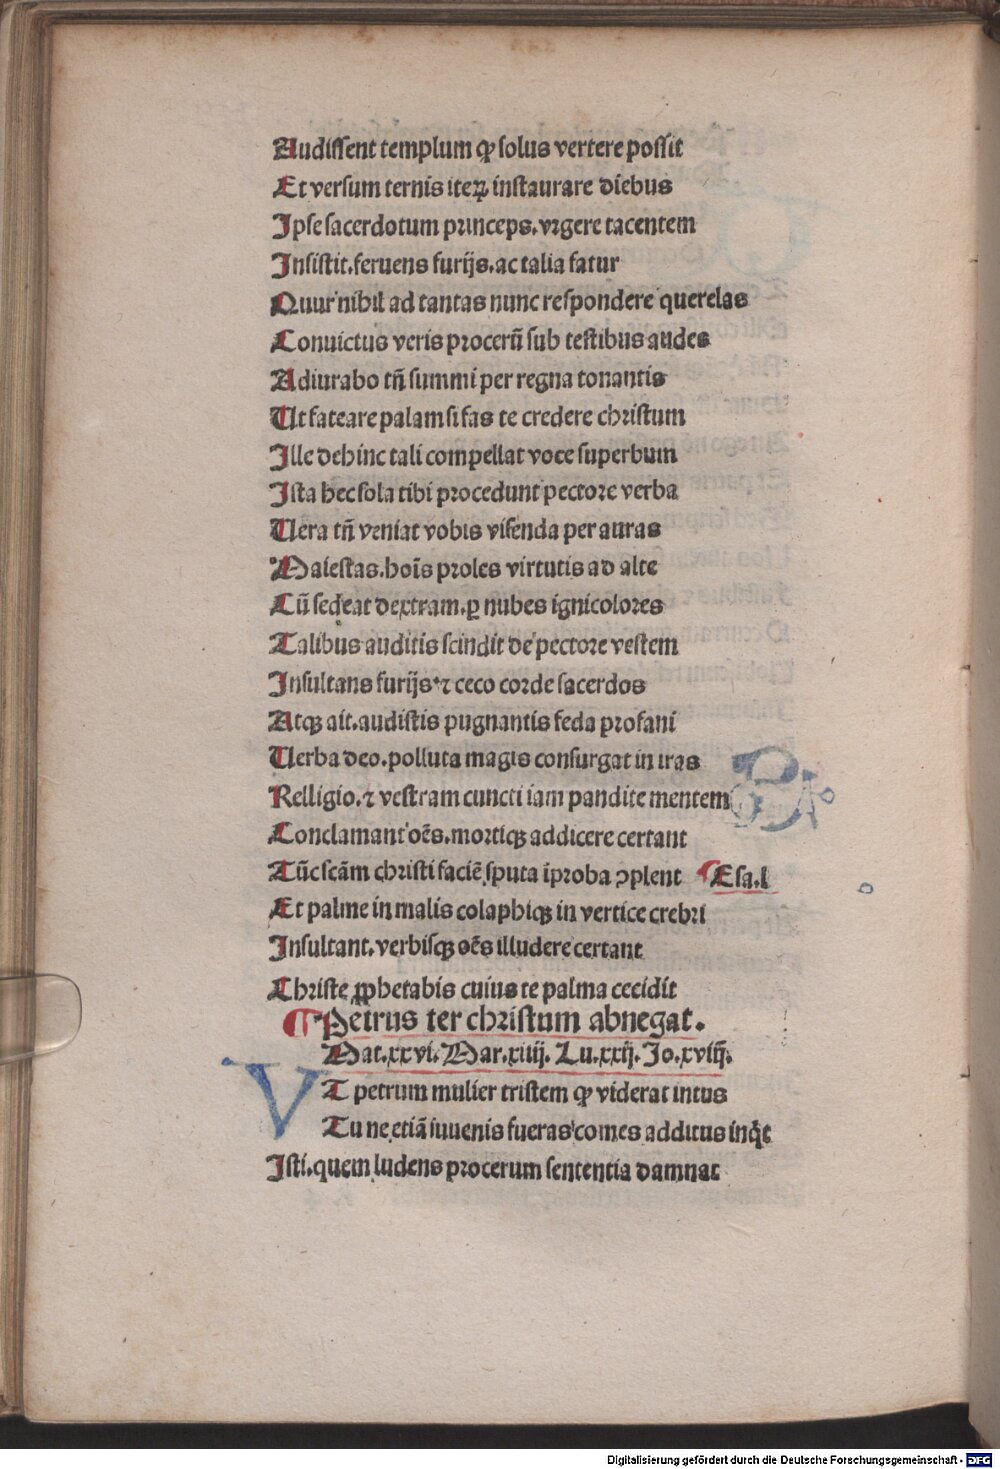 Audissent templum ꝙ solus vertere possit
Et versum ternis iteꝝ instaurare diebus
Ipse sacerdotum princeps. vrgere tacentem
Insistit. feruens furijs. ac talia fatur
Quur nihil ad tantas nunc respondere querelas
Conuictus veris procerū sub testibus audes
Adiurabo tñ summi per regna tonantis
Ut fateare palam si fas te credere christum
Ille dehinc tali compellat voce superbum
Ista hec sola tibi procedunt pectore verba
Uera tñ veniat vobis visenda per auras
Maiestas. hoīs proles virtutis ad alte
Cū sedeat dextram. ꝑ nubes ignicolores
Talibus auditis scindit de pectore vestem
Insultans furijs ⁊ ceco corde sacerdos
Atqꝫ ait. audistis pugnantis feda profani
Uerba deo. polluta magis consurgat in iras
Relligio. ⁊ vestram cuncti iam pandite mentem
Conclamant oēs. mortiqꝫ addicere certant
Tūc scām christi faciē sputa īproba ↄplent ¶ Esa. l
Et palme in malis colaphiqꝫ in vertice crebri
Insultant. verbisqꝫ oēs illudere certant
Christe ꝓphetabis cuius te palma cecidit
¶ Petrus ter christum abnegat.
Mat. xxvi. Mar. xiiij. Lu. xxij. Jo. xviij.
VT petrum mulier tristem ꝙ viderat intus
Tu ne etiā iuuenis fueras comes additus inq̇t
Isti. quem ludens procerum sententia damnat
Digitalisierung gefördert durch die Deutsche Forschungsgemeinschaft - DFG